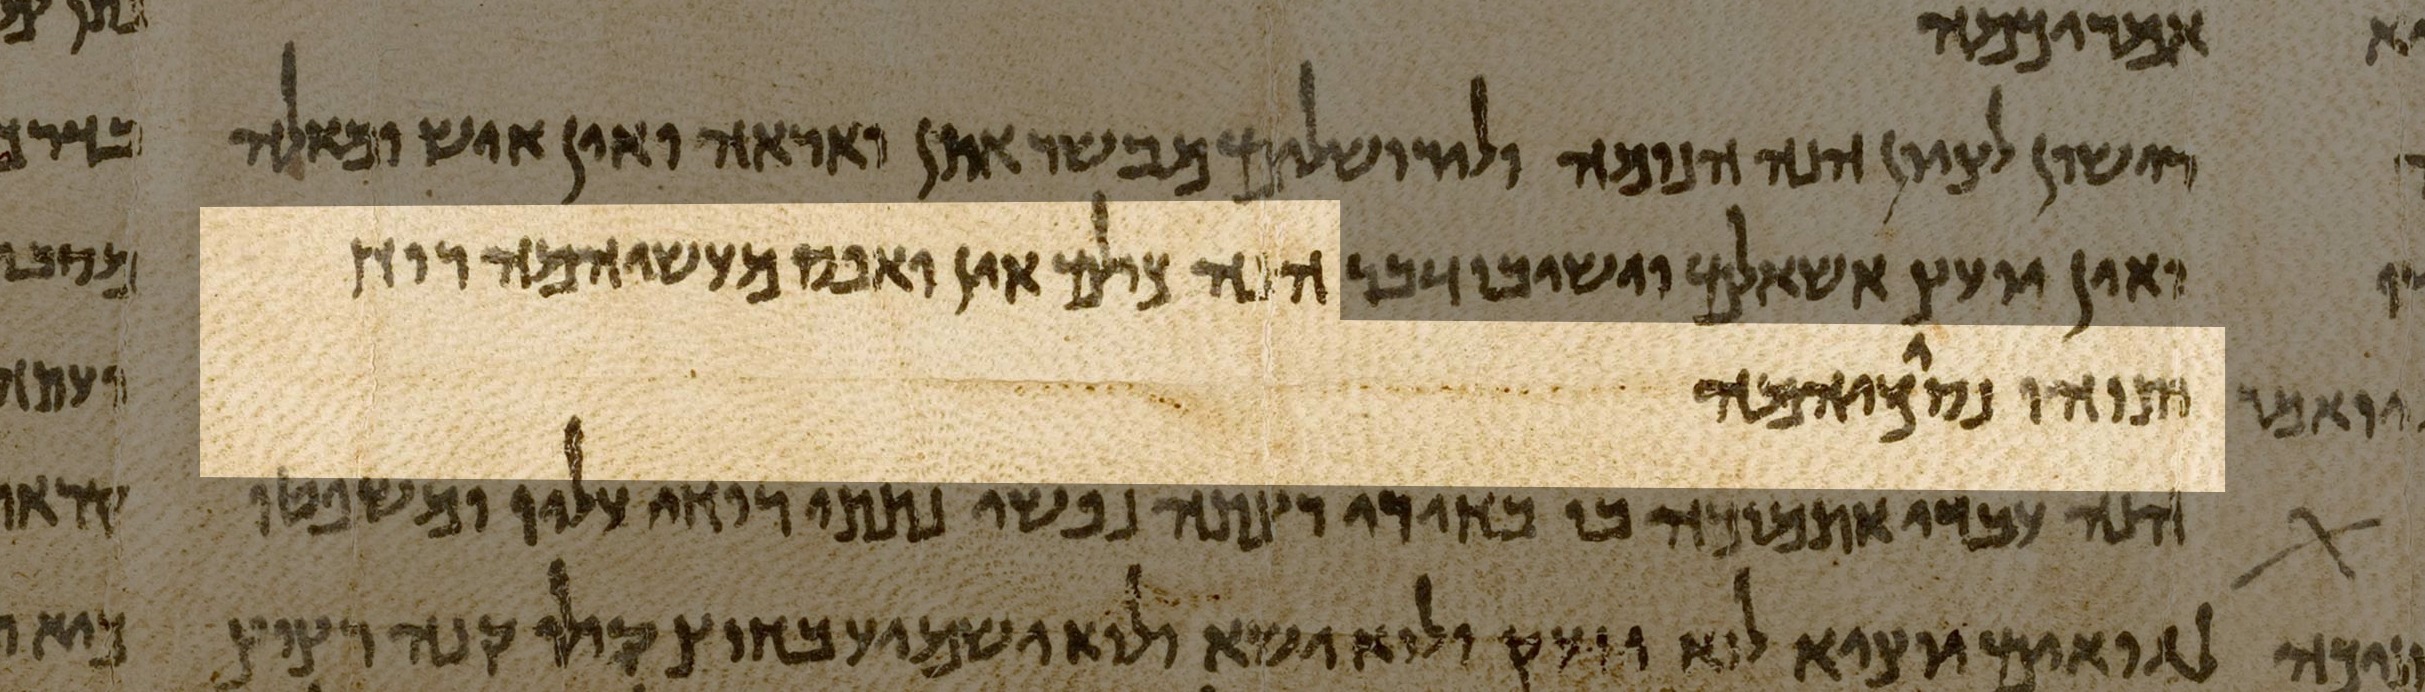 אמריכמה
רישון לציון הנה הנומה ולירושלים מבשר אתן ואראה ואין איש ומאלה
ואין יועץ אשאלם וישיבו דבר הנה כולם אין ואפס מעשיהמה רוח
ותוהו נסיכיהמה
הנה עבדי אתמוכה בו בחירי רצתה נפשי נתתי רוחי עליו ומשפטו
לגואים יוציא לוא יזעק ולוא ישא ולוא ישמיע בחוץ קולו קנה רצוץ